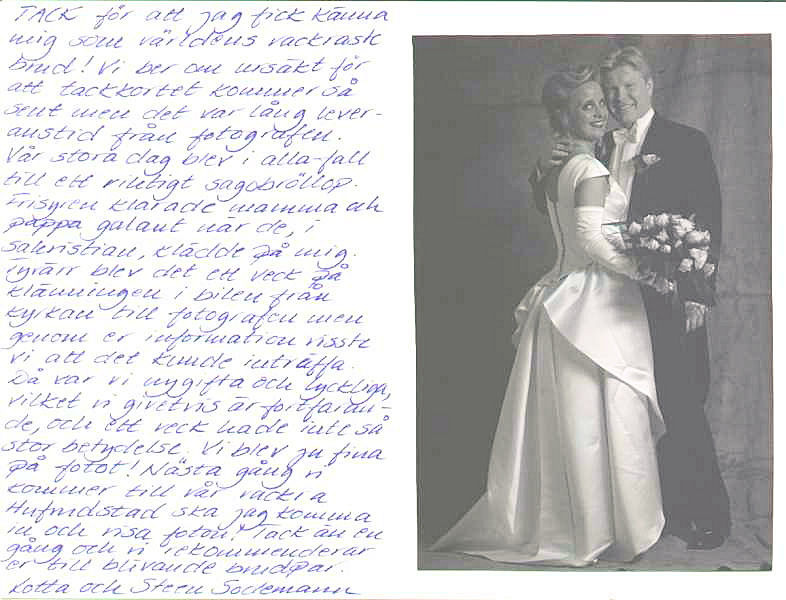 TACK för att jag fick känna
mig som världens vackraste
brud! Vi ber om ursäkt för
att tackkortet kommer så
sent men det var lång lever-
anstid från fotografen.
Vår stora dag blev i alla-fall
till ett riktigt sagobröllop.
Frisyren klarade mamma och
pappa galant när de, i
sakristian, klädde på mig.
Tyvärr blev det ett veck på
klänningen i bilen från
kyrkan till fotografen men
genom er information visste
vi att det kunde inträffa.
Då var vi nygifta och lyckliga,
vilket vi givetvis är fortfaran-
de, och ett veck hade inte så
stor betydelse. Vi blev ju fina
på fotot! Nästa gång vi
kommer till vår vackra
Hufvudstad ska jag komma
in och visa foton! Tack än en
gång och vi rekommenderar
er till blivande brudpar.
Lotta och Steen Sodemann